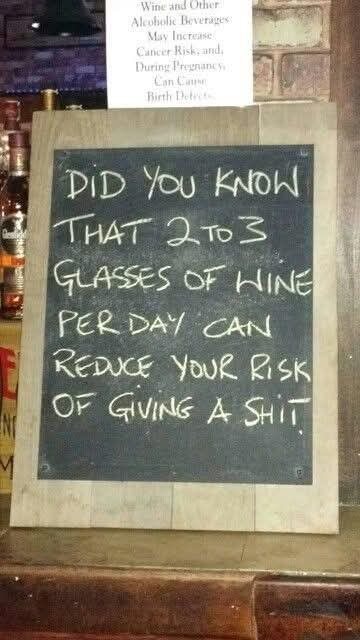 Wine and Other
Alcoholic Beverages
May Increase
Cancer Risk, and,
During Pregnancy,
Can Cause
Birth Defects.
DID YOU KNOW
THAT 2 TO 3
GLASSES OF WINE
PER DAY CAN
REDUCE YOUR RISK
OF GIVING A SHIT.